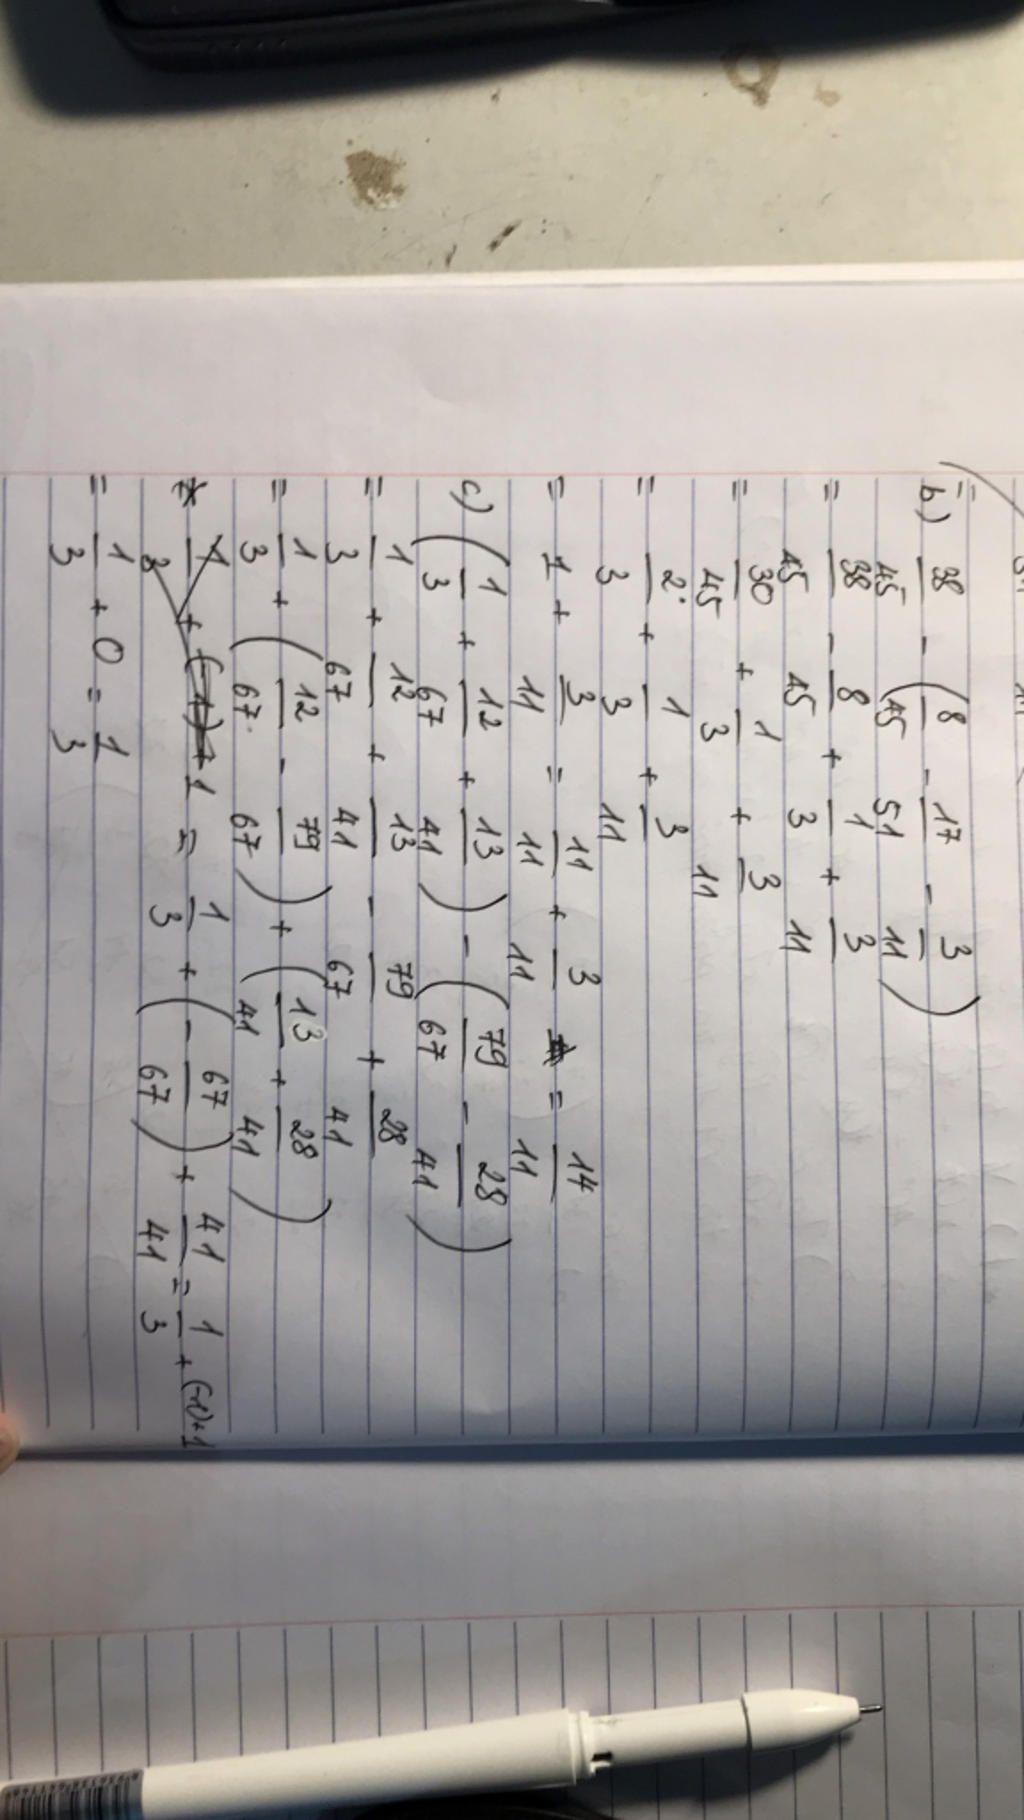 b) 38/45 - (8/45 - 17/51 - 3/11)
= 38/45 - 8/45 + 1/3 + 3/11
= 30/45 + 1/3 + 3/11
= 2/3 + 1/3 + 3/11
= 1 + 3/11 = 11/11 + 3/11 = 14/11
c) (1/3 + 12/67 + 13/41) - (79/67 - 28/41)
= 1/3 + 12/67 + 13/41 - 79/67 + 28/41
= 1/3 + (12/67 - 79/67) + (13/41 + 28/41)
= 1/3 + (-67/67) + 41/41 = 1/3 + (-1) + 1
= 1/3 + 0 = 1/3